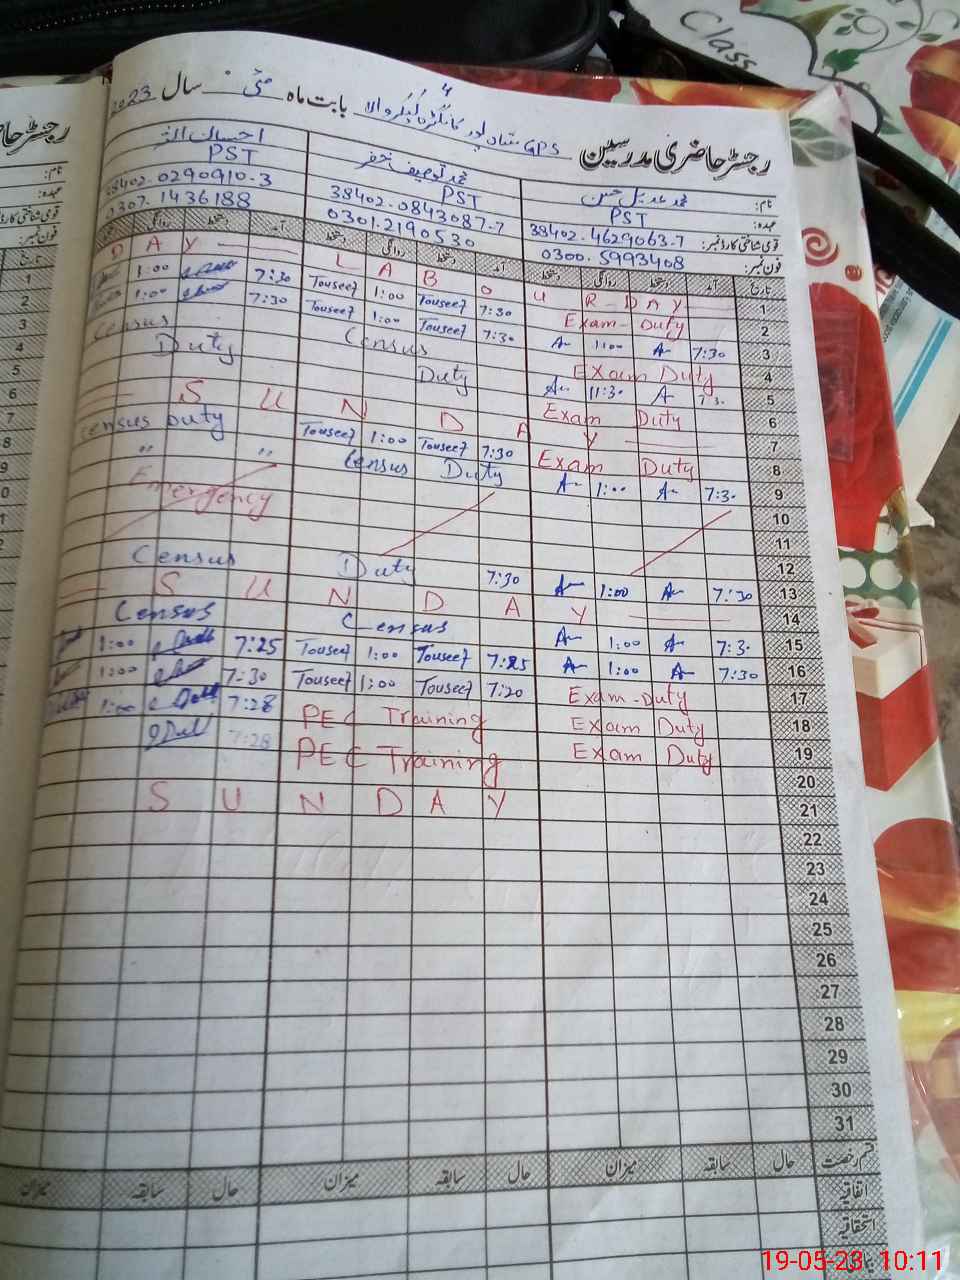 Class
رجسٹر حاضری مدرسین GPS بابت ماہ مئی سال 2023
نام:
عہدہ: PST PST PST
قومی شناختی کارڈ نمبر: 38402-4629063-7 38402-0843087-7 38402-0290910-3
فون نمبر: 0300-5993408 0301-2190530 0307-1436188
تاریخ آمد دستخط روانگی دستخط آمد دستخط روانگی دستخط آمد دستخط روانگی
1 LABOUR-DAY DAY
2 Exam-Duty 7:30 Touseef 1:00 Touseef 7:30 1:00
3 7:30 A 1:00 A 7:30 Touseef 1:00 Touseef 7:30 1:00
4 Exam Duty Census Duty Census Duty
5 7:3. A 11:30 A
6 Exam Duty
7 SUNDAY
8 Exam Duty 7:30 Touseef 1:00 Touseef Census Duty
9 7:3. A 1:00 A Census Duty " "
10 Emergency
11
12
13 7:30 A 1:00 A 7:30 Census Duty
14 SUNDAY
15 7:3. A 1:00 A Census Census
16 7:30 A 1:00 A 7:25 Touseef 1:00 Touseef 7:25 1:00
17 Exam-Duty 7:20 Touseef 1:00 Touseef 7:30 1:00
18 Exam Duty PEC Training 7:28 1:00
19 Exam Duty PEC Training 7:28
20
21 SUNDAY
22
23
24
25
26
27
28
29
30
31
قسم رخصت حال سابقہ میزان حال سابقہ میزان حال سابقہ میزان
اتفاقیہ
استحقاقیہ
19-05-23 10:11